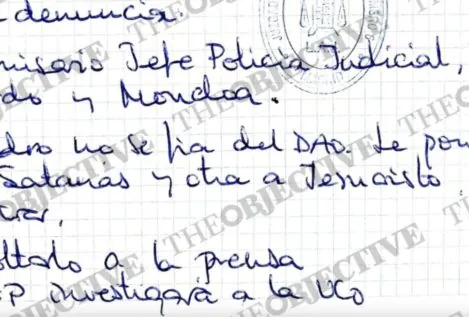 denuncia.
misario Jefe Policía Judicial,
do y Moncloa.
dro no se fía del DAO. Le pon
Satanás y otra a Jesucristo
ltado a la prensa
P investigará a la UCO
THEOBJECTIVE